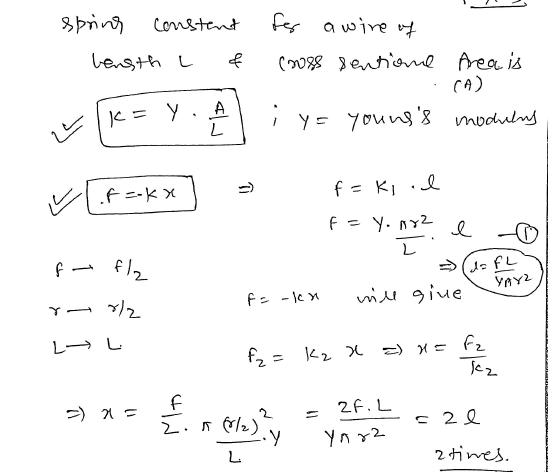 spring constant for a wire of
length L & cross sentional Area is
(A)
K = Y . A/L ; Y = young's modulus
f = -k x ⇒ f = K₁ . l
f = Y. πr²/L . l —①
⇒ l = fL/Yπr²
f → f/2
r → r/2 f = -kx will give
L → L
f₂ = K₂ x ⇒ x = f₂/k₂
⇒ x = f/2. π (r/2)²/L .Y = 2f.L/Yπr² = 2l
2 times.